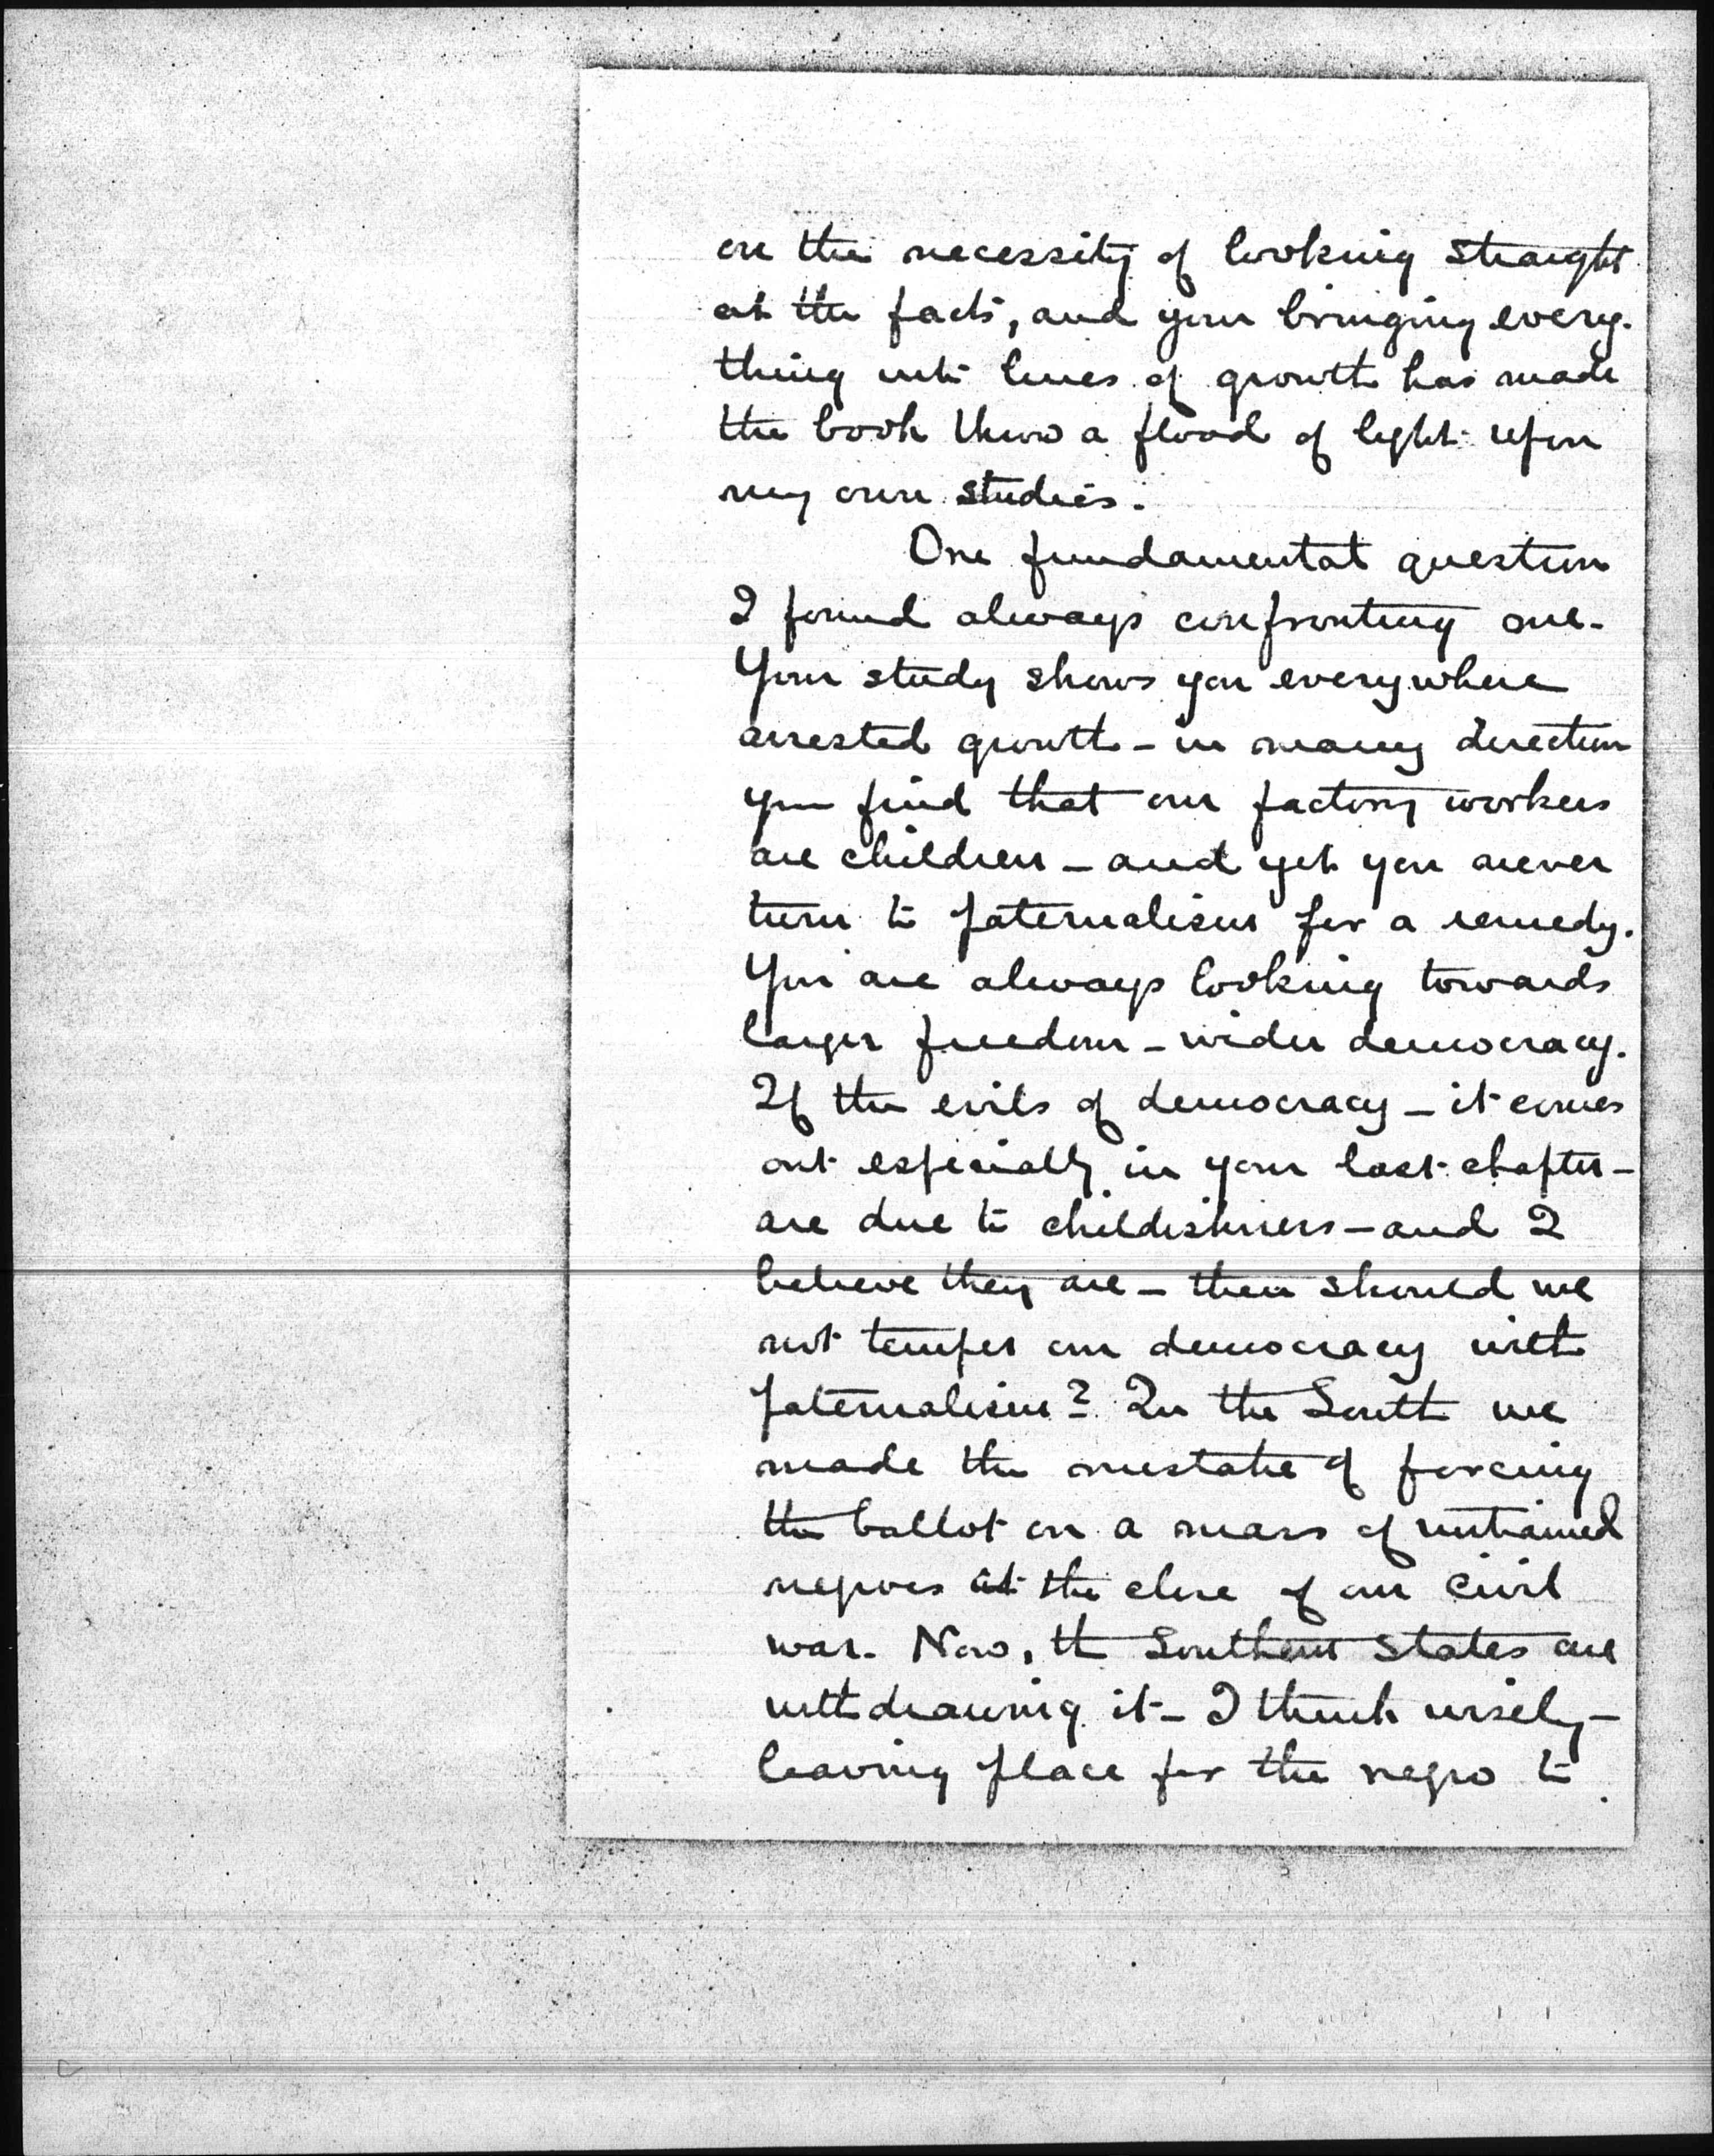 on the necessity of looking straight
at the facts, and your bringing every-
thing into lines of growth has made
the book throw a flood of light upon
my own studies.
One fundamental question
I found always confronting me.
Your study shows you everywhere
arrested growth - in many direction
you find that our factory workers
are children - and yet you never
turn to paternalism for a remedy.
You are always looking towards
larger freedom - wider democracy.
If the evils of democracy - it comes
out especially in your last chapter -
are due to childishness - and I
believe they are - then should we
not temper our democracy with
paternalism? In the South we
made the mistake of forcing
the ballot on a mass of untrained
negroes at the close of our civil
war. Now, the Southern States are
withdrawing it - I think wisely -
leaving place for the negro to